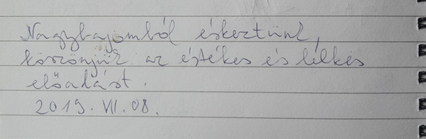 Nagybajomból érkeztünk,
köszönjük az értékes és lelkes
előadást.
2019. VII. 08.